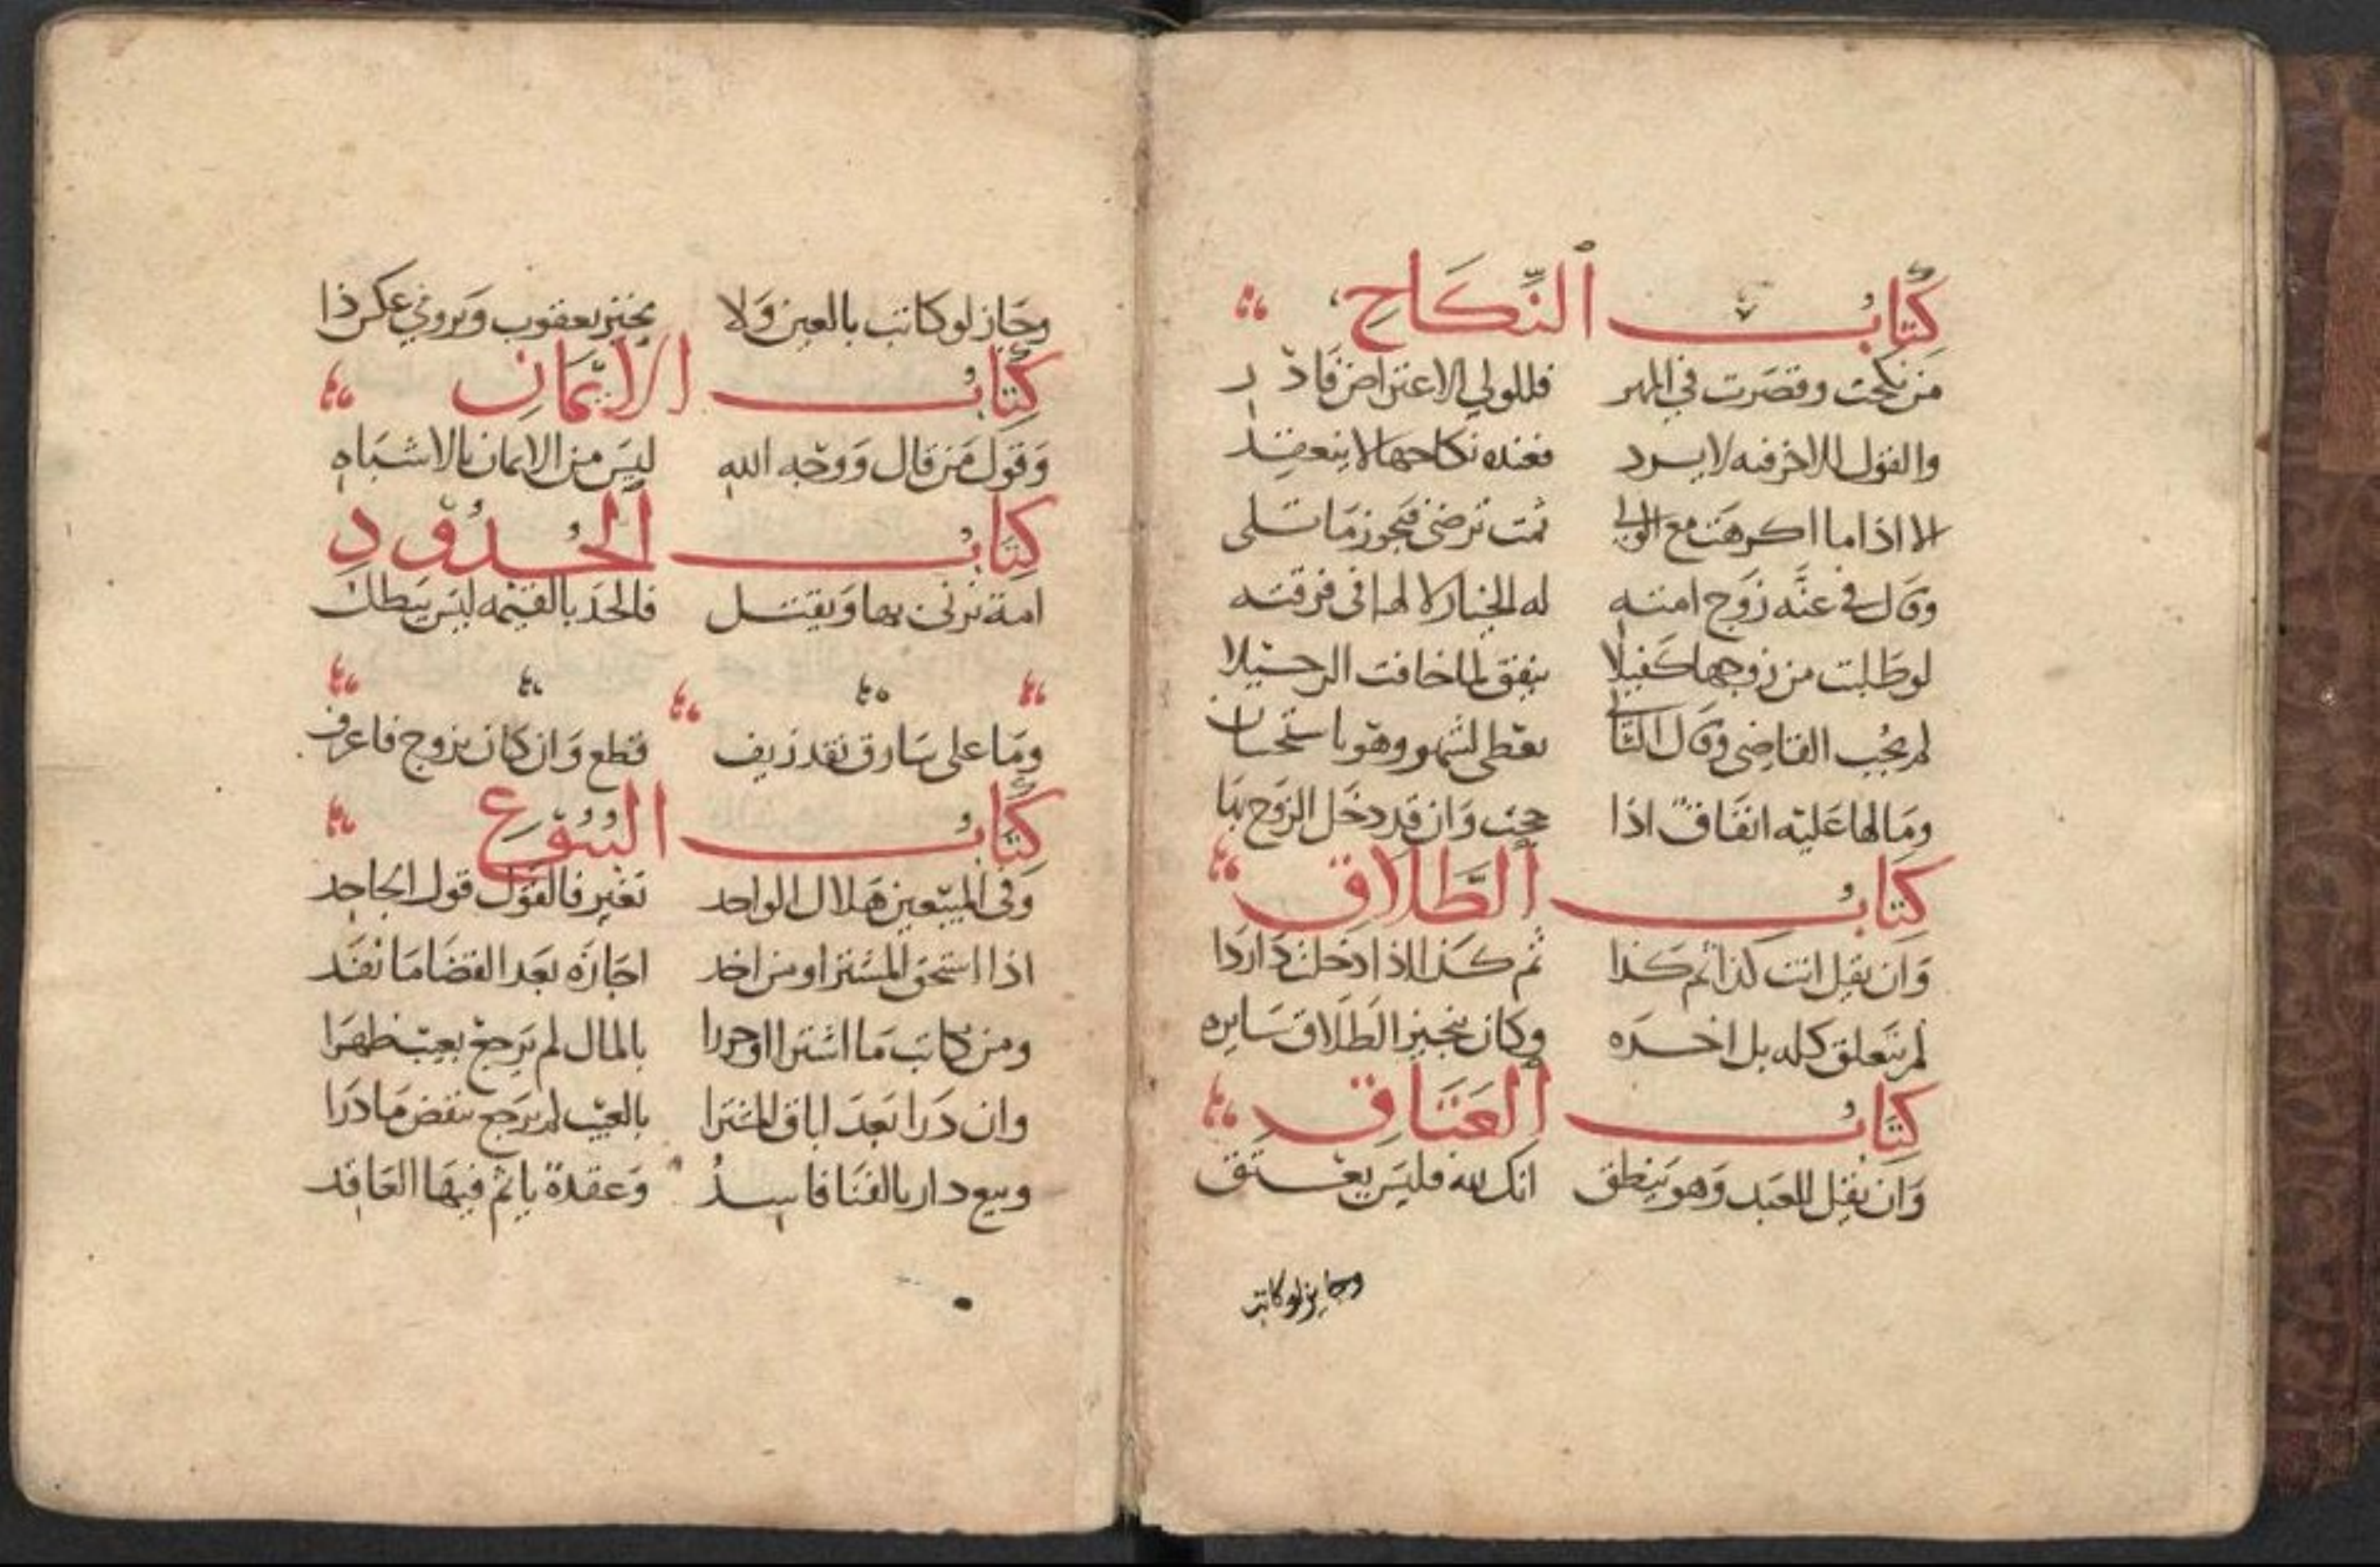 كِتَابُ النِّكَاحِ
من نكحت وقصرت في المهر فللولي الاعتراض فادر
والقول الاخر فيه لا يرد فعنده نكاحها لا ينعقد
الا اذا ما اكرهت مع الولي ثمت ترضى فيجوز ما تلى
وقال في عنّه زوج امته له الخيار لا لها في فرقته
لو طلبت من زوجها كفيلا ينفق لما خافت الرحيلا
لم يجب القاضي وقال الثاني يعطى لشهر وهو باستحسان
وما لها عليه انفاق اذا حجت وان قد دخل الزوج بها
كِتَابُ الطَّلَاقِ
وان يقل انت كذا ثم كذا ثم كذا اذا دخلت دار
لم يتعلق كله بل اخره وكان تنجيز الطلاق سايره
كِتَابُ العَتَاقِ
وان يقل للعبد وهو ينطق انك لله فليس يعتق
وجايز لو كاتب
وجاز لو كاتب بالعين ولا يجيز يعقوب ويروي عكس ذا
كِتَابُ الايْمَانِ
وقول من قال ووجه الله ليس من الايمان بالاشباه
كِتَابُ الحُدُودِ
امة يزني بها ويقتل فالحد بالقيمه ليس يبطل
وما على سارق نقد زيف قطع وان كان يروج فاعرف
كِتَابُ البُيُوعِ
وفي المبيعين هلاك الواحد تغير فالقول قول الجاحد
اذا استحق المشترا ومن اخذ اجازه بعد القضا ما نفذ
ومن كاتب ما اشترا او حررا بالمال لم يرجع بعيب ظهرا
وان درا بعد اباق المشترا بالعيب لم يرجع بنقض ما درا
وبيع دار بالفنا فاسد وعقدة ياثم فيها العاقد